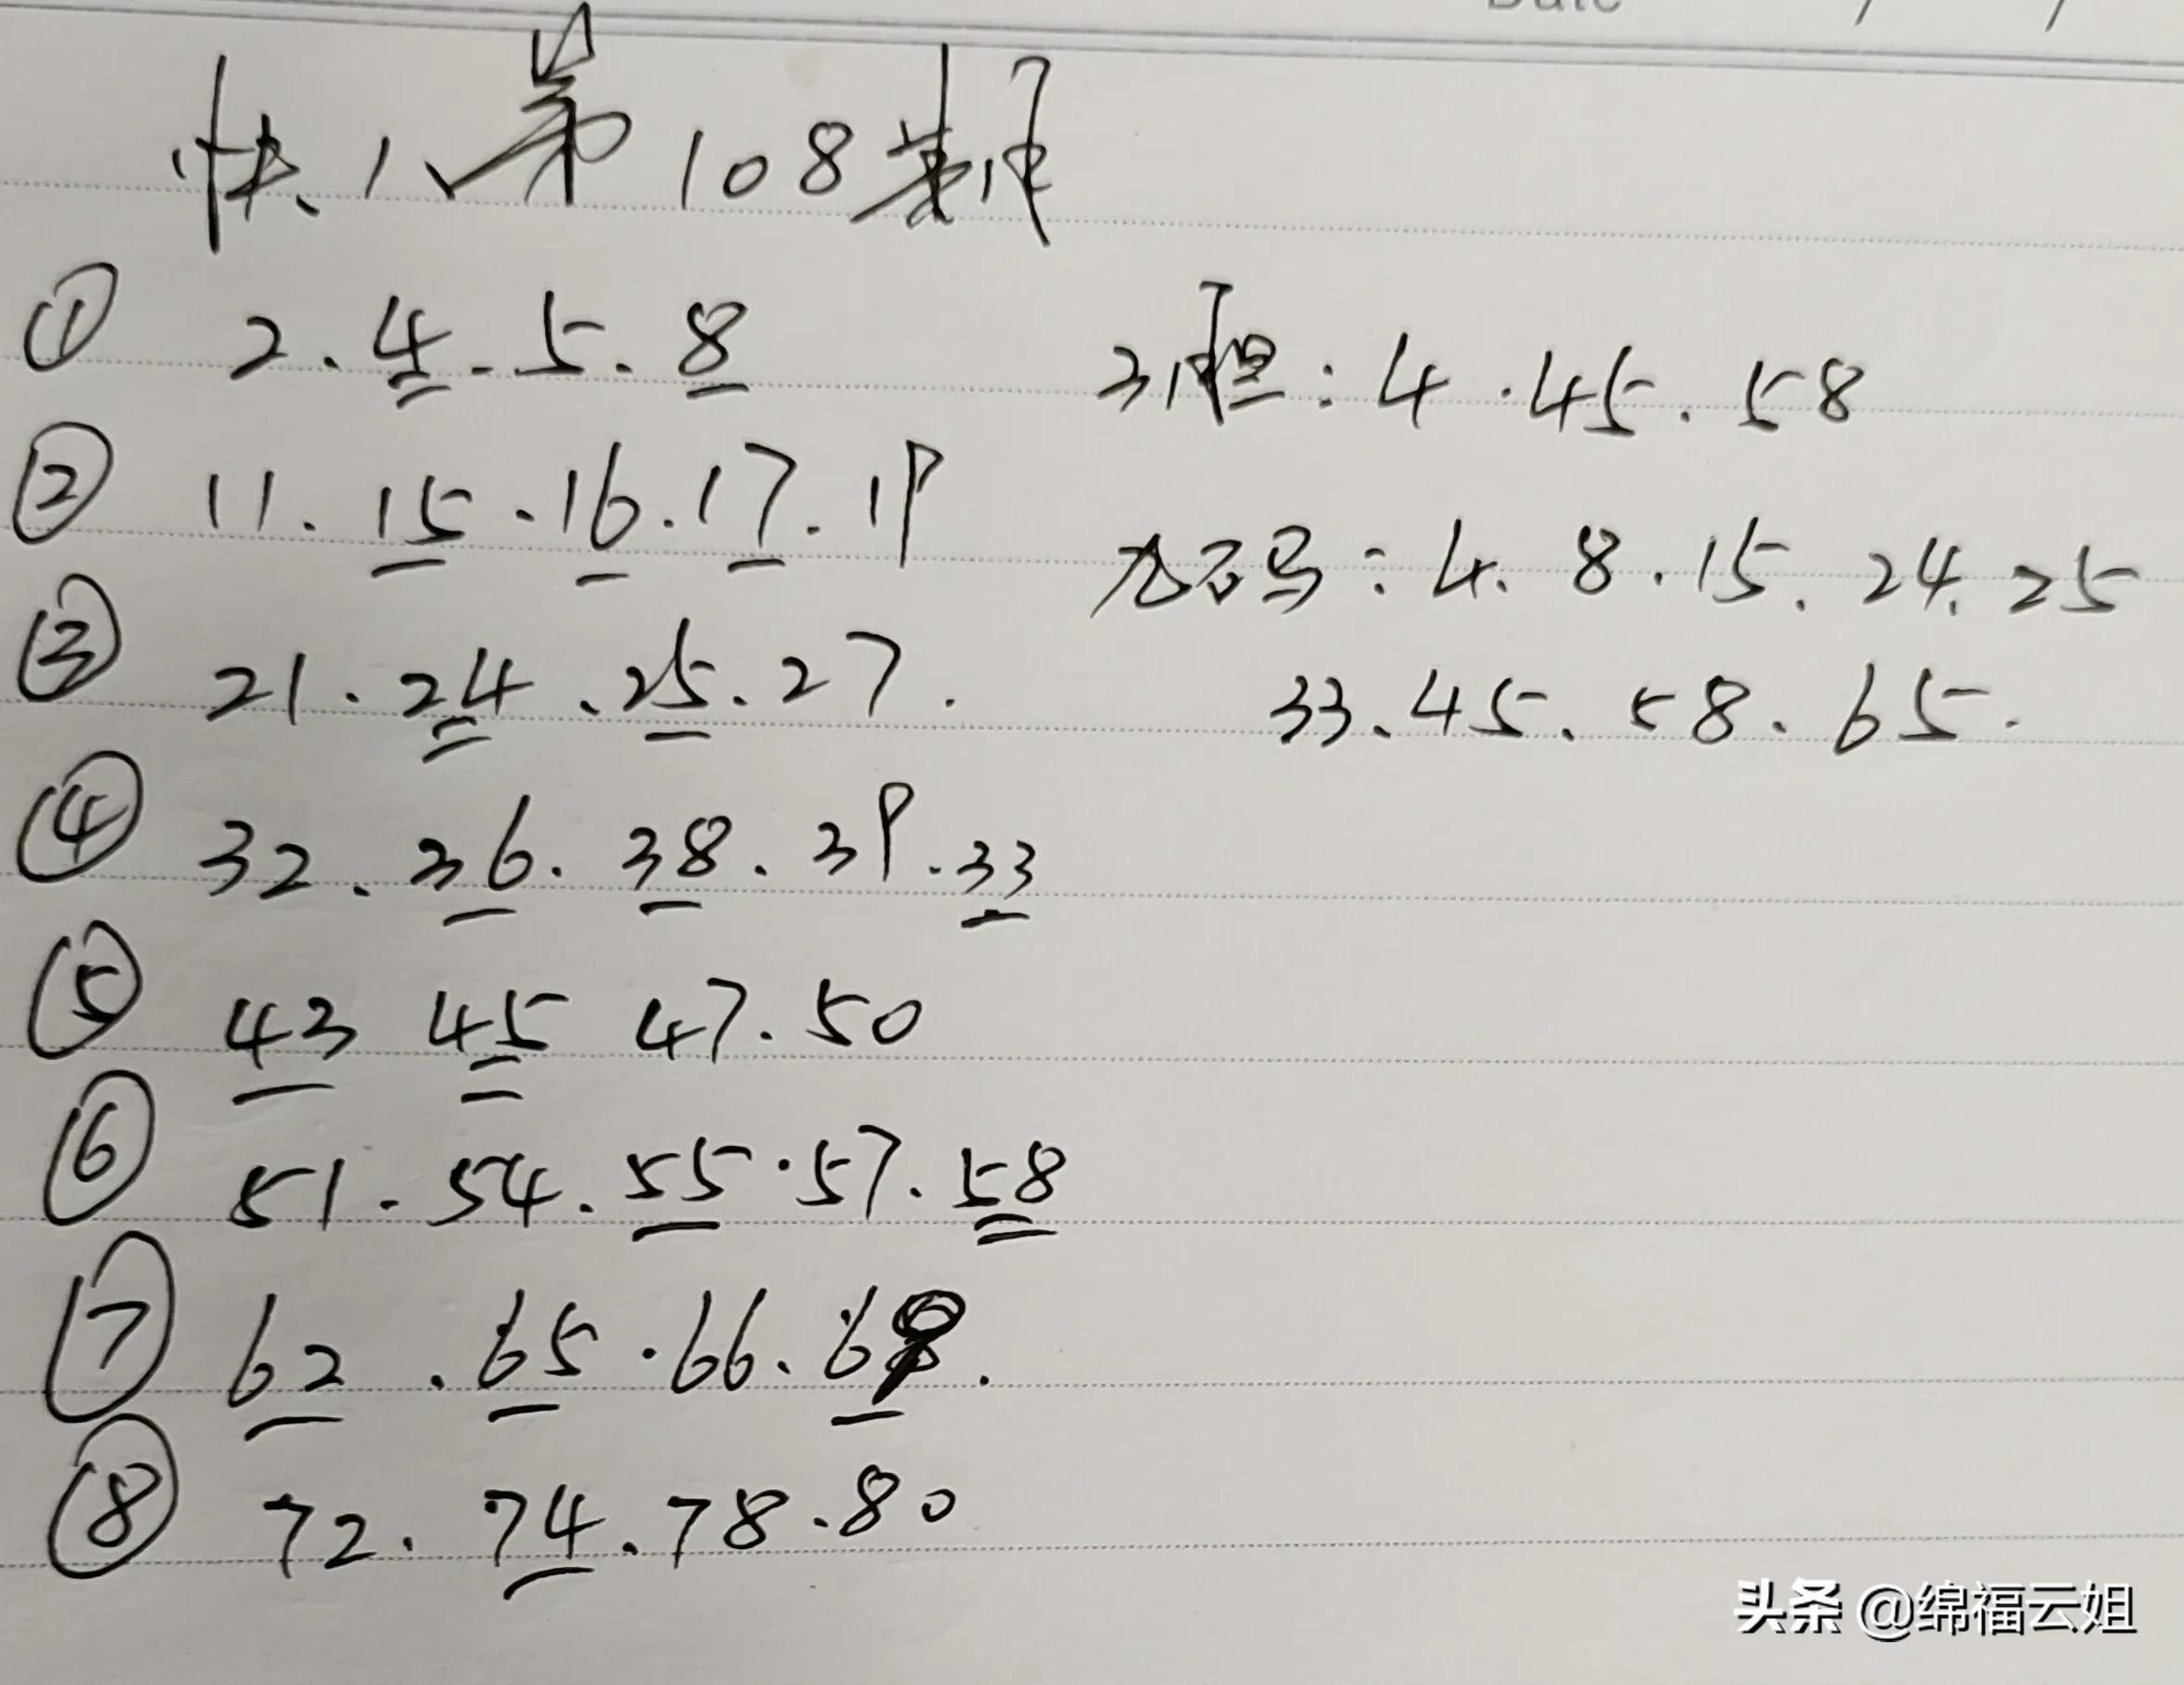 Date / /
快八第108期
① 2.4.5.8
3胆:4.45.58
② 11.15.16.17.19
九石码:4.8.15.24.25
③ 21.24.25.27.
33.45.58.65.
④ 32.36.38.39.33
⑤ 43 45 47.50
⑥ 51.54.55.57.58
⑦ 62.65.66.69.
⑧ 72.74.78.80
头条 @绵福云姐